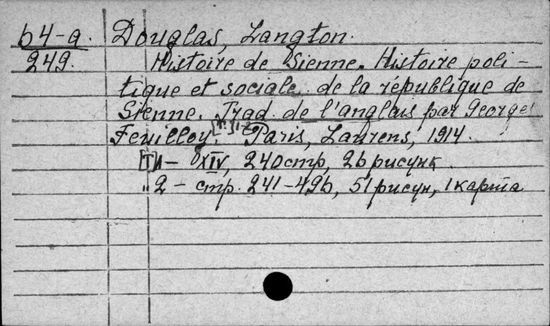 64-a. Douglas, Langton.
249. Histoire de Sienne. Histoire poli-
tique et sociale de la république de
Sienne. Trad. de l'anglais par Georges
Feuilloy. [T.]1-2 Paris, Laurens, 1914.
[T]1 - XIV, 240 стр, 26 рисунк.
"2 - стр. 241-496, 51 рисун, 1 карта